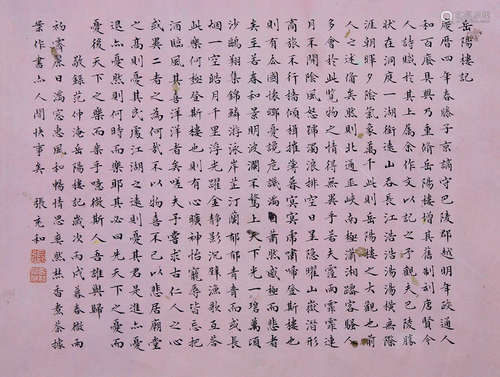 岳陽樓記
慶曆四年春滕子京謫守巴陵郡越明年政通人
和百廢具興乃重脩岳陽樓增其舊制刻唐賢今
人詩賦於其上屬余作文以記之予觀夫巴陵勝
狀在洞庭一湖銜遠山吞長江浩浩湯湯橫無際
涯朝暉夕陰氣象萬千此則岳陽樓之大觀也前
人之述備矣然則北通巫峽南極瀟湘遷客騷人
多會於此覽物之情得無異乎若夫霪雨霏霏連
月不開陰風怒號濁浪排空日星隱曜山嶽潛形
商旅不行檣傾楫摧薄暮冥冥虎嘯猿啼登斯樓也
則有去國懷鄉憂讒畏譏滿目蕭然感極而悲者
矣至若春和景明波瀾不驚上下天光一碧萬頃
沙鷗翔集錦鱗游泳岸芷汀蘭郁郁青青而或長
煙一空皓月千里浮光躍金靜影沉璧漁歌互答
此樂何極登斯樓也則有心曠神怡寵辱皆忘把
酒臨風其喜洋洋者矣嗟夫予嘗求古仁人之心
或異二者之為何哉不以物喜不以己悲居廟堂
之高則憂其民處江湖之遠則憂其君是進亦憂
退亦憂然則何時而樂耶其必曰先天下之憂而
憂後天下之樂而樂乎噫微斯人吾誰與歸
敬錄范仲淹岳陽樓記歲次丙戌暮春微雨
初霽日滿窗惠風和暢情思奐然焚香煮茶據
案作書亦人間快事矣 張充和